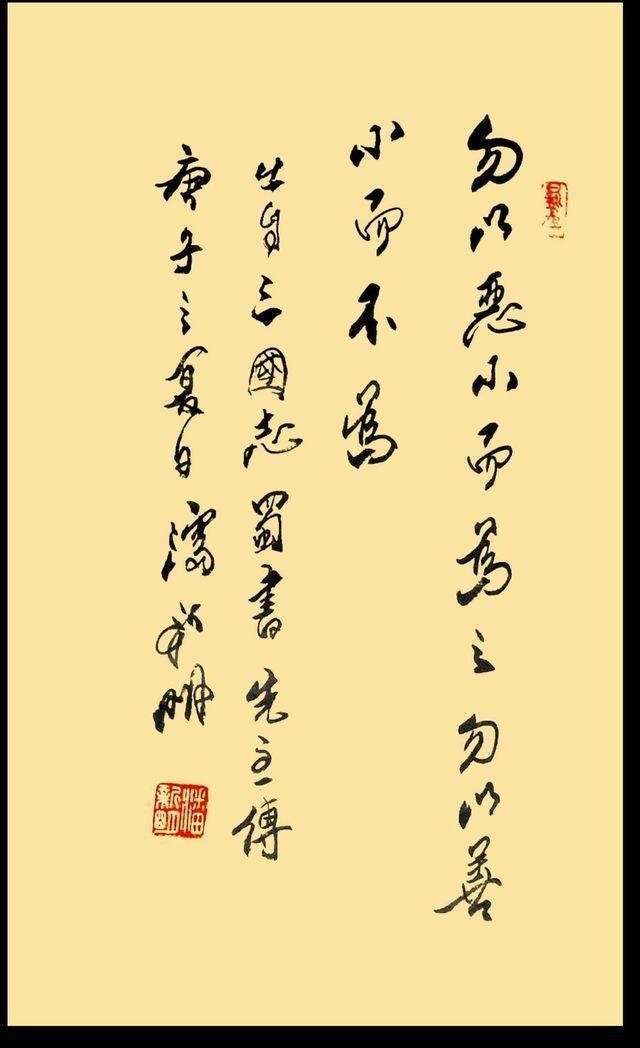 勿以惡小而為之勿以善
小而不為
出自三國志蜀書先主傳
庚子之夏日潘新明
潘新明